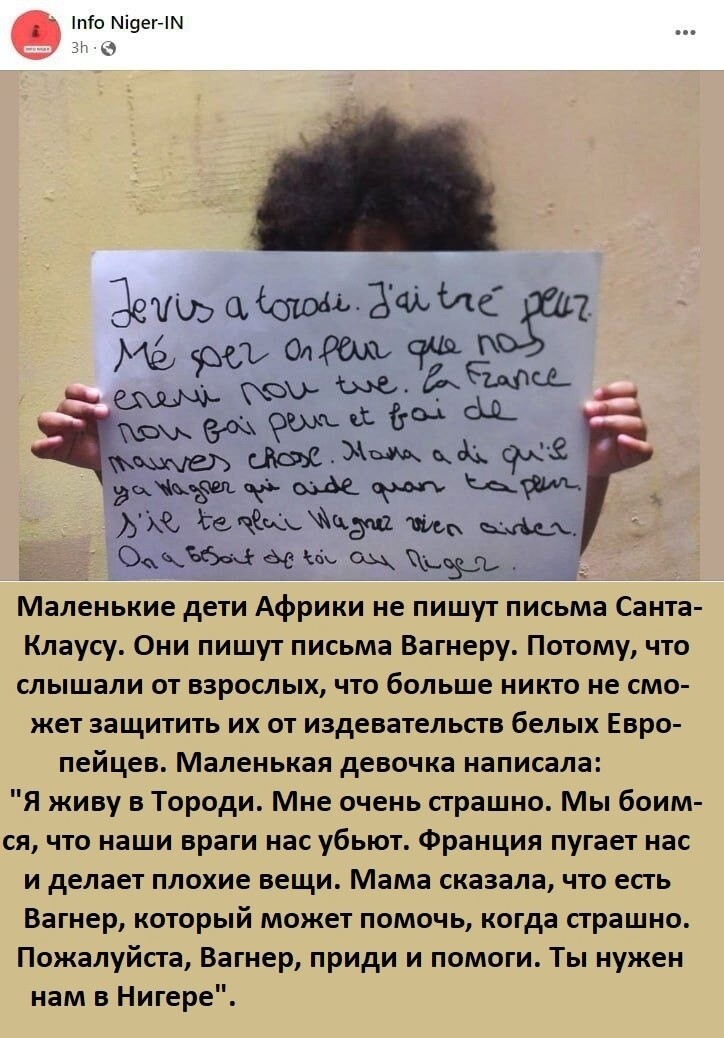 Info Niger-IN
3h
INFO NIGER
Je vis a torodi. J'ai tré peur.
Mé soez on peur que nos
enemi nou tue. La France
nou fai peur et fai de
mauves chose. Mama a di qu'il
ya Wagner qui aide quan ta peur.
S'il te plai Wagner vien aider.
On a besoit de toi au Niger.
Маленькие дети Африки не пишут письма Санта-
Клаусу. Они пишут письма Вагнеру. Потому, что
слышали от взрослых, что больше никто не смо-
жет защитить их от издевательств белых Евро-
пейцев. Маленькая девочка написала:
"Я живу в Тороди. Мне очень страшно. Мы боим-
ся, что наши враги нас убьют. Франция пугает нас
и делает плохие вещи. Мама сказала, что есть
Вагнер, который может помочь, когда страшно.
Пожалуйста, Вагнер, приди и помоги. Ты нужен
нам в Нигере".